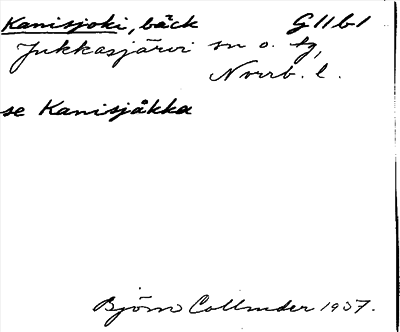 Kanisjoki, bäck G11b1
Jukkasjärvi sn o. tg,
Norrb. l.
se Kanisjåkka
Björn Collinder 1937.